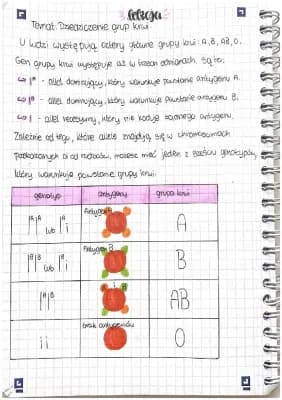 Lekcja
Temat: Dziedziczenie grup krwi
U ludzi występują cztery główne grupy krwi: A, B, AB, O.
Gen grupy krwi występuje aż w trzech odmianach. Są to:
↪ Iᴬ - allel dominujący, który warunkuje powstanie antygenu A.
↪ Iᴮ - allel dominujący, który warunkuje powstanie antygenu B.
↪ i - allel recesywny, który nie koduje żadnego antygenu.
Zależnie od tego, które allele znajdują się w chromosomach
przekazanych ci od rodziców, możesz mieć jeden z sześciu genotypów,
który warunkuje powstanie grupy krwi.
genotyp antygeny grupa krwi
IᴬIᴬ lub Iᴬi Antygen A A
IᴮIᴮ lub Iᴮi Antygen B B
IᴬIᴮ AB
ii brak antygenów O